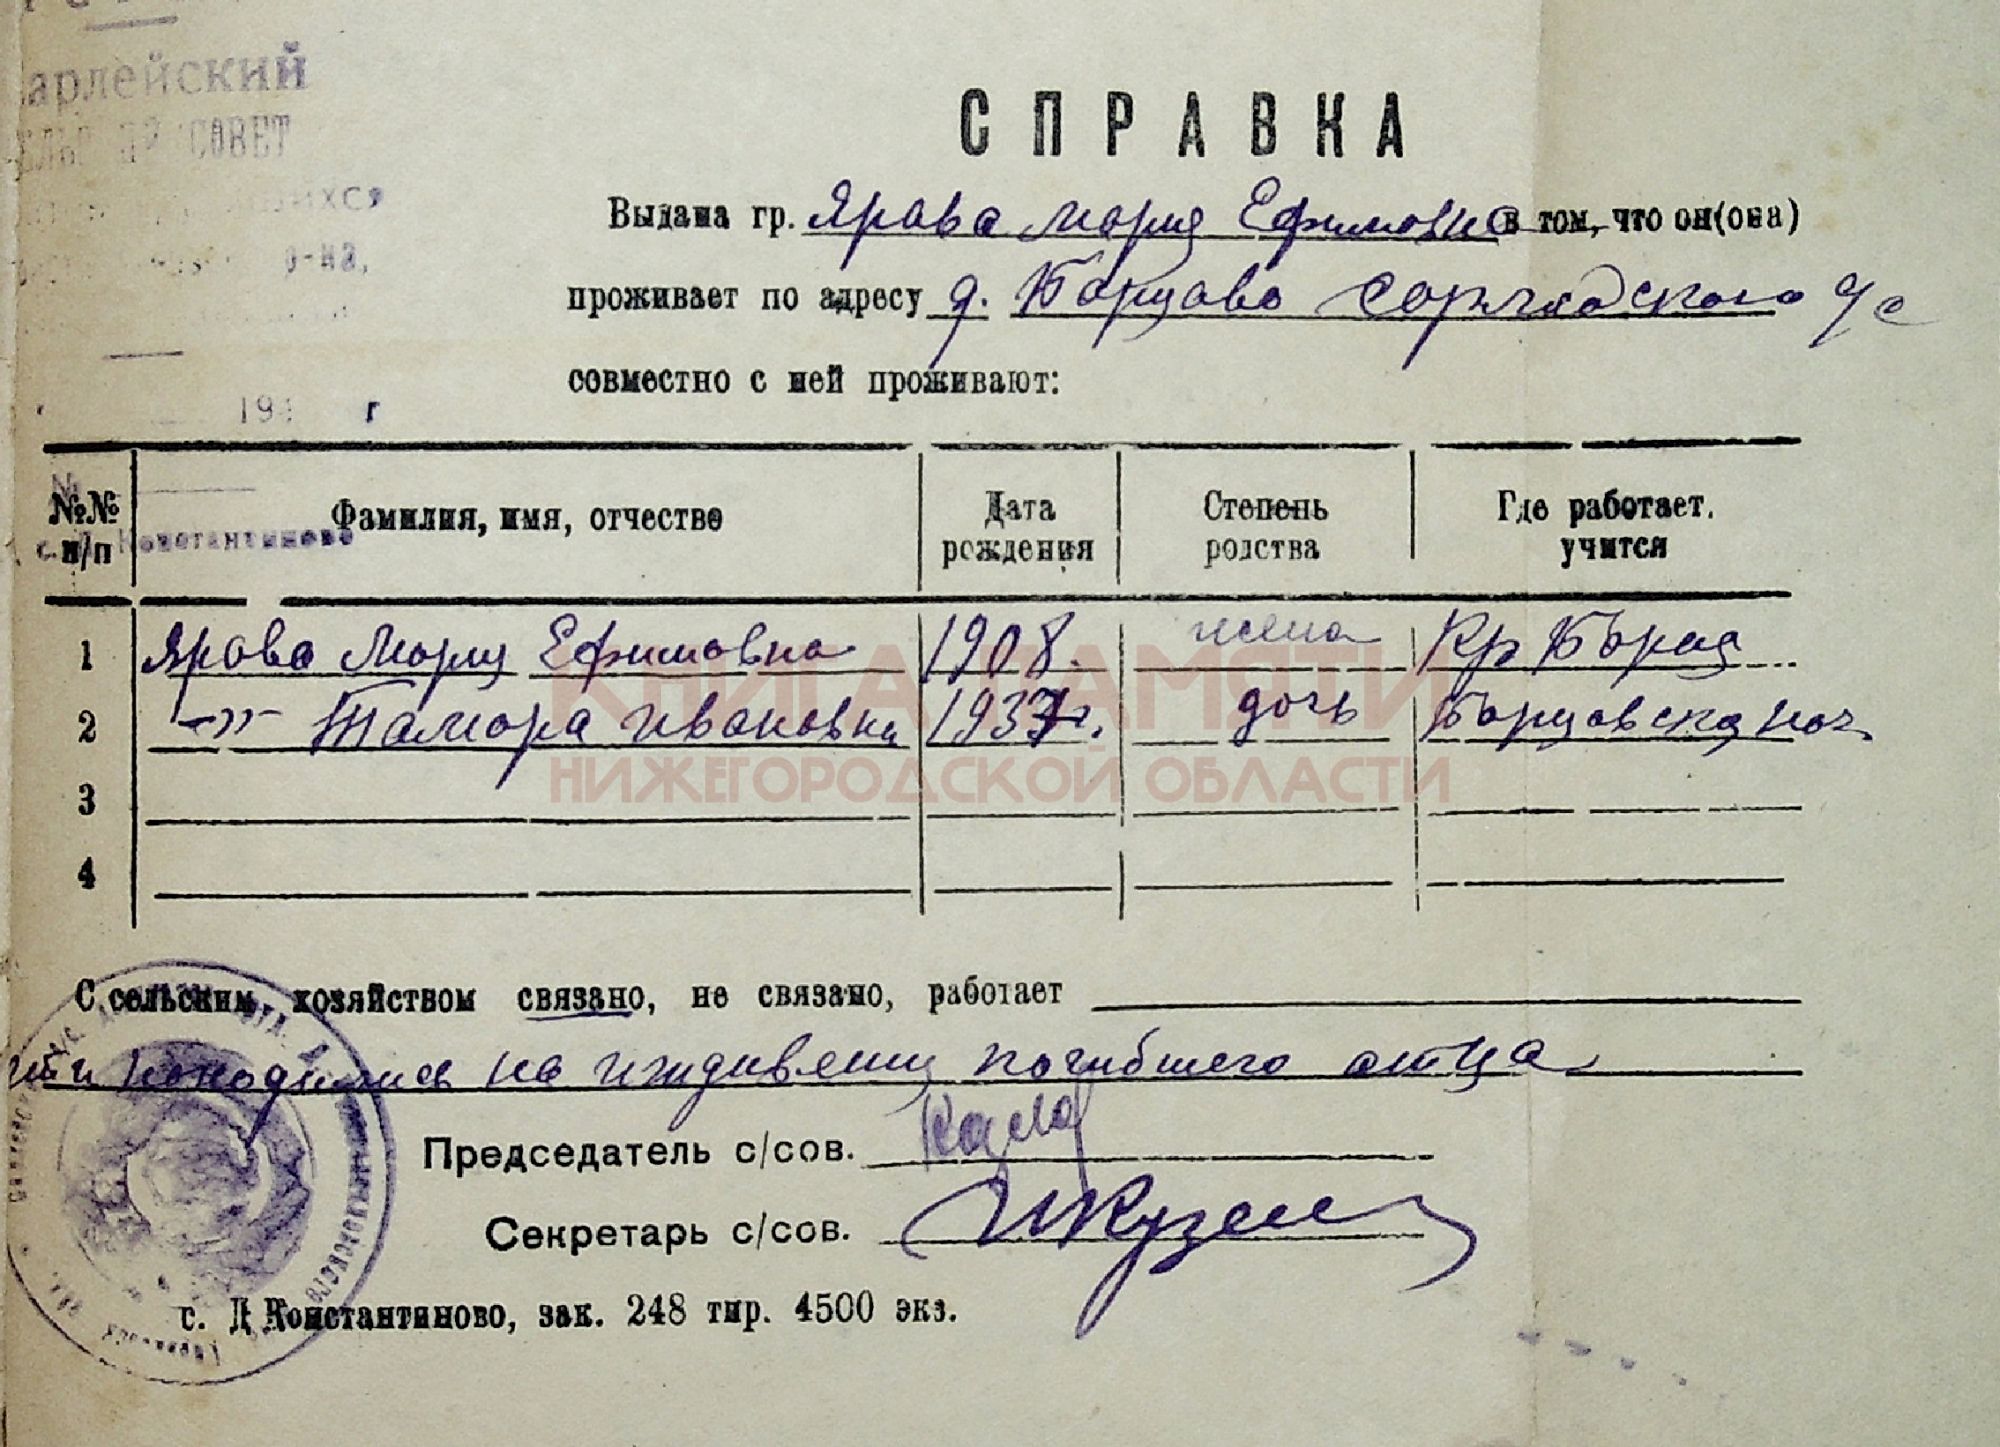 арлейский
СОВЕТ
р-на,
194 г
№
с. Д Константиново
СПРАВКА
Выдана гр. Ярова Мария Ефимовна в том, что он(она)
проживает по адресу д. Борцово
совместно с ней проживают:
№№ п/п
Фамилия, имя, отчество
Дата рождения
Степень родства
Где работает. учится
1 Ярова Мария Ефимовна 1908. жена Кр Борец
2 -»- Тамара Ивановна 1937г. дочь Борцовская нач.
3
4
КНИГА ПАМЯТИ
НИЖЕГОРОДСКОЙ ОБЛАСТИ
С сельским хозяйством связано, не связано, работает
и находились на иждивении погибшего отца
Председатель с/сов.
Секретарь с/сов.
с. Д Константиново, зак. 248 тир. 4500 экз.